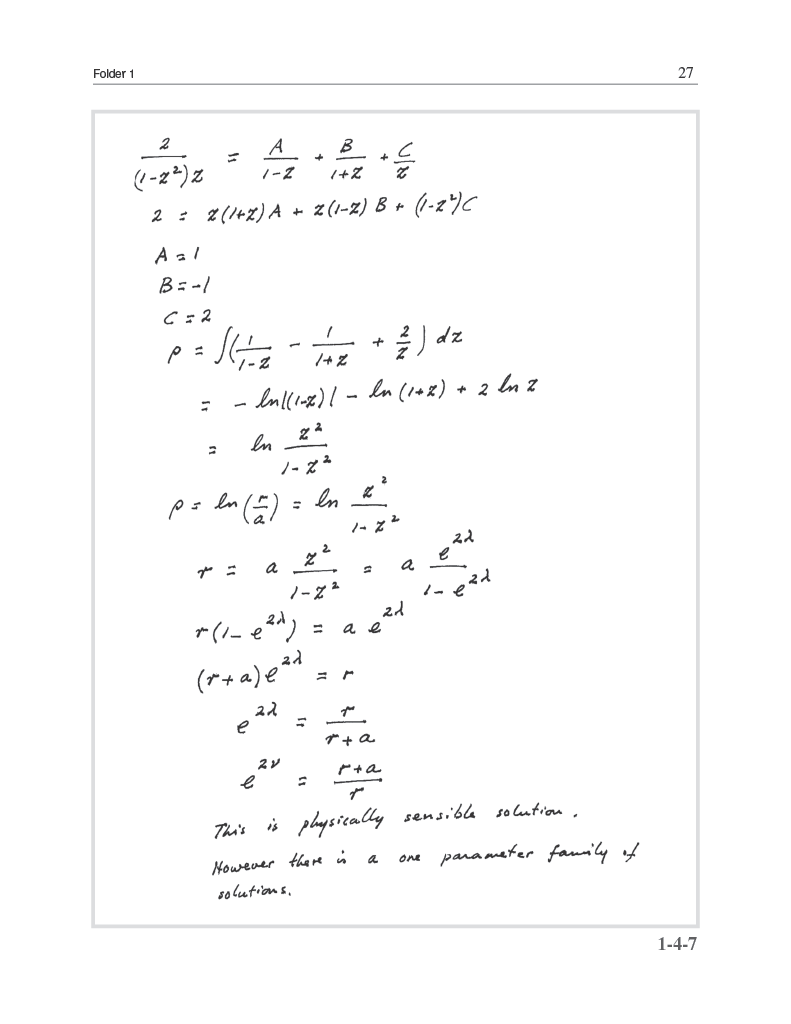 Folder 1 27
2/((1-z²)z) = A/(1-z) + B/(1+z) + C/z
2 = z(1+z)A + z(1-z)B + (1-z²)C
A = 1
B = -1
C = 2
ρ = ∫(1/(1-z) - 1/(1+z) + 2/z) dz
= - ln|(1-z)| - ln(1+z) + 2 ln z
= ln z²/(1-z²)
ρ = ln(r/a) = ln z²/(1-z²)
r = a z²/(1-z²) = a e^{2λ}/(1-e^{2λ})
r(1-e^{2λ}) = a e^{2λ}
(r+a)e^{2λ} = r
e^{2λ} = r/(r+a)
e^{2ν} = (r+a)/r
This is physically sensible solution.
However there is a one parameter family of
solutions.
1-4-7